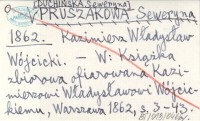 [DUCHIŃSKA, Seweryna]
PRUSZAKOWA Seweryna
1862. Kazimierz Władysław
Wójcicki. — W: Książka
zbiorowa ofiarowana Kazi-
mierzowi Władysławowi Wójcic-
kiemu, Warszawa 1862, s. 3-43.